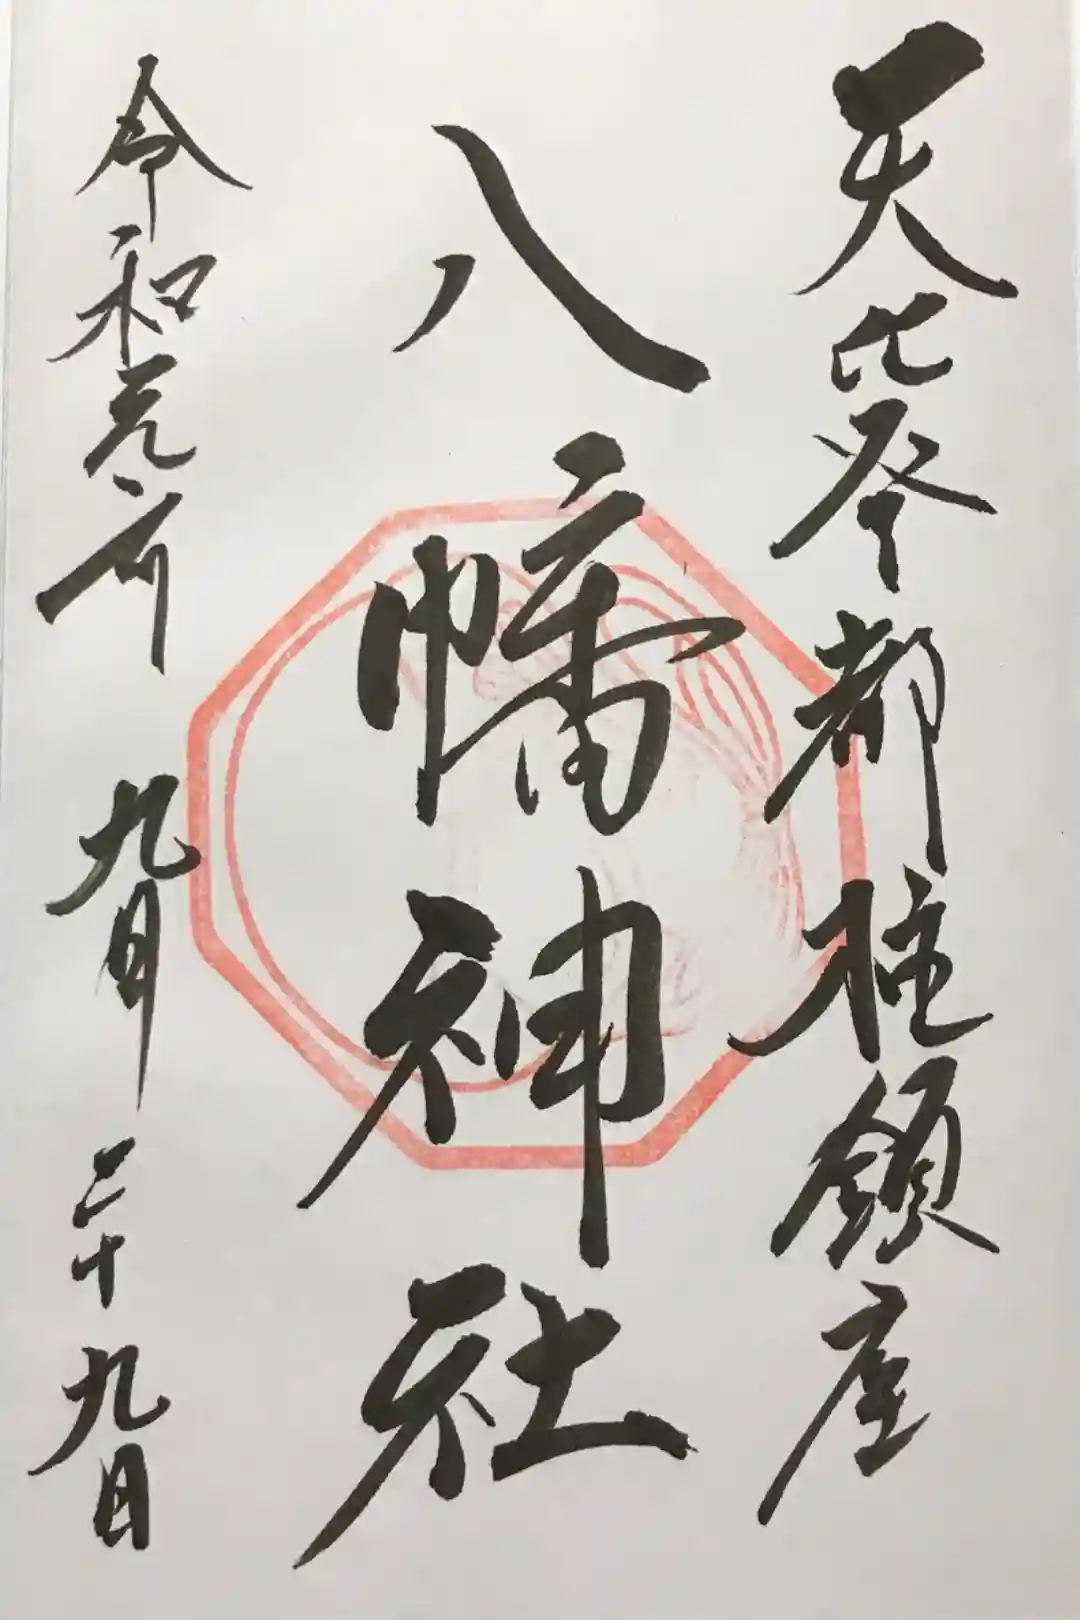 天比登都柱鎮座
八幡神社
令和元年 九月 二十九日